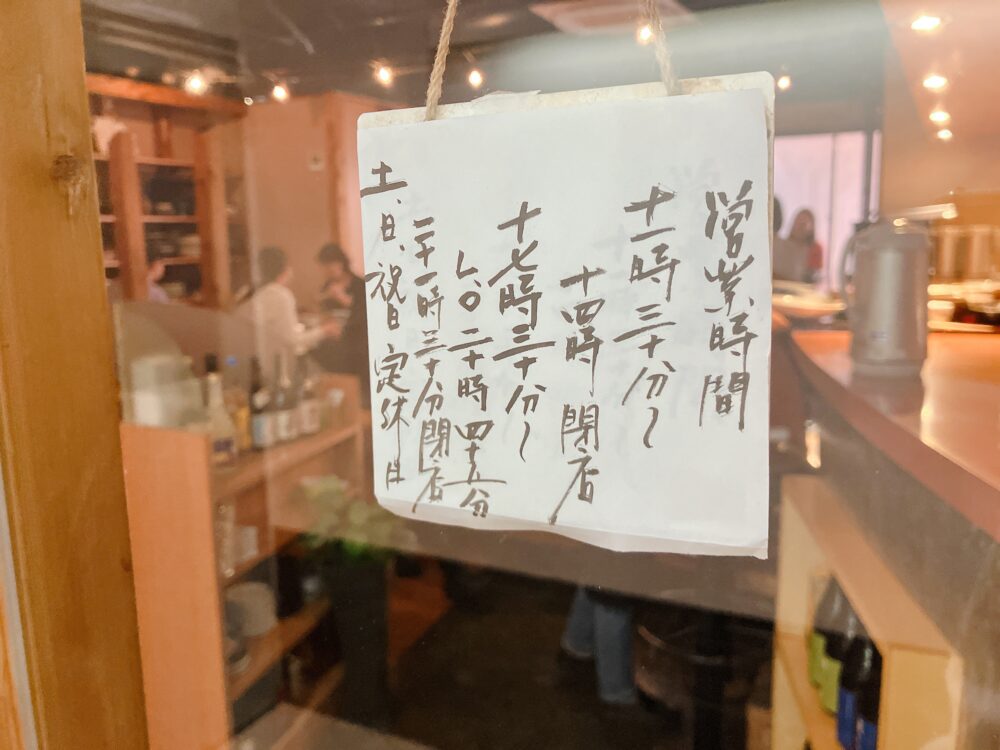 営業時間
十一時三十分〜
十四時閉店
十七時三十分〜
L.O 二十時四十五分
二十一時三十分閉店
土、日、祝日 定休日